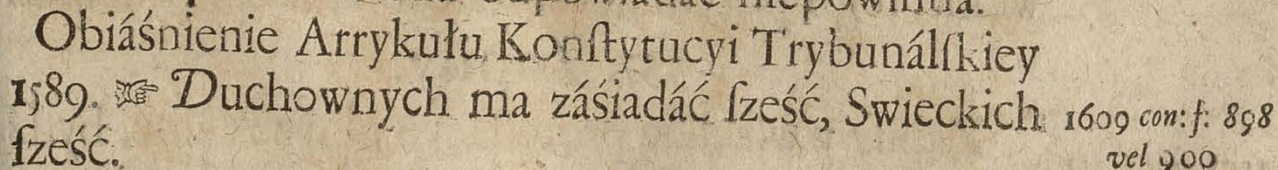 Obiáśnienie Arrykułu Konſtytucyi Trybunálſkiey
1589. ☞ Duchownych ma záśiadáć ſześć, Swieckich 1609 con: f: 898
ſześć. vel 900